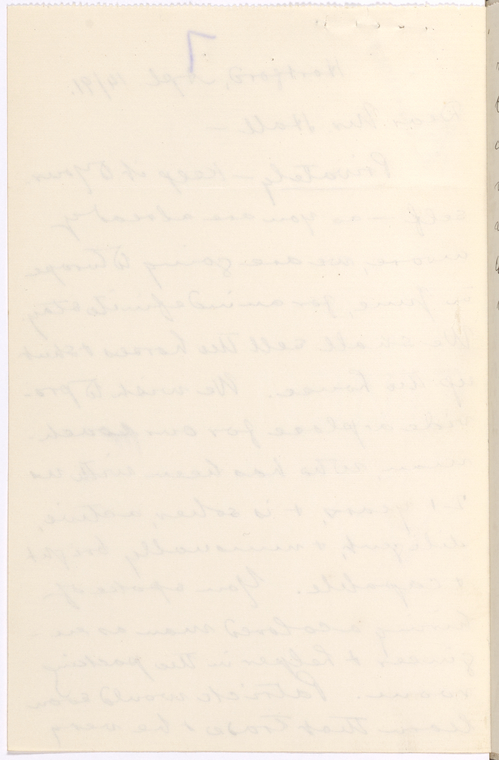 Hartford, Apl 14/91.
Dear Mr. Hall —
Privately — keep it to your-
self — as you are already
aware, we are going to Europe
in June, for an indefinite stay.
We shall sell the horses & shut
up the house. We wish to pro-
vide a place for our coach-
man, who has been with us
21 years, & is sober, active,
diligent, & unusually bright
& capable. You spoke of
hiring a colored man as en-
gineer & helper in the packing
room. Patrick would soon
learn that trade & be very